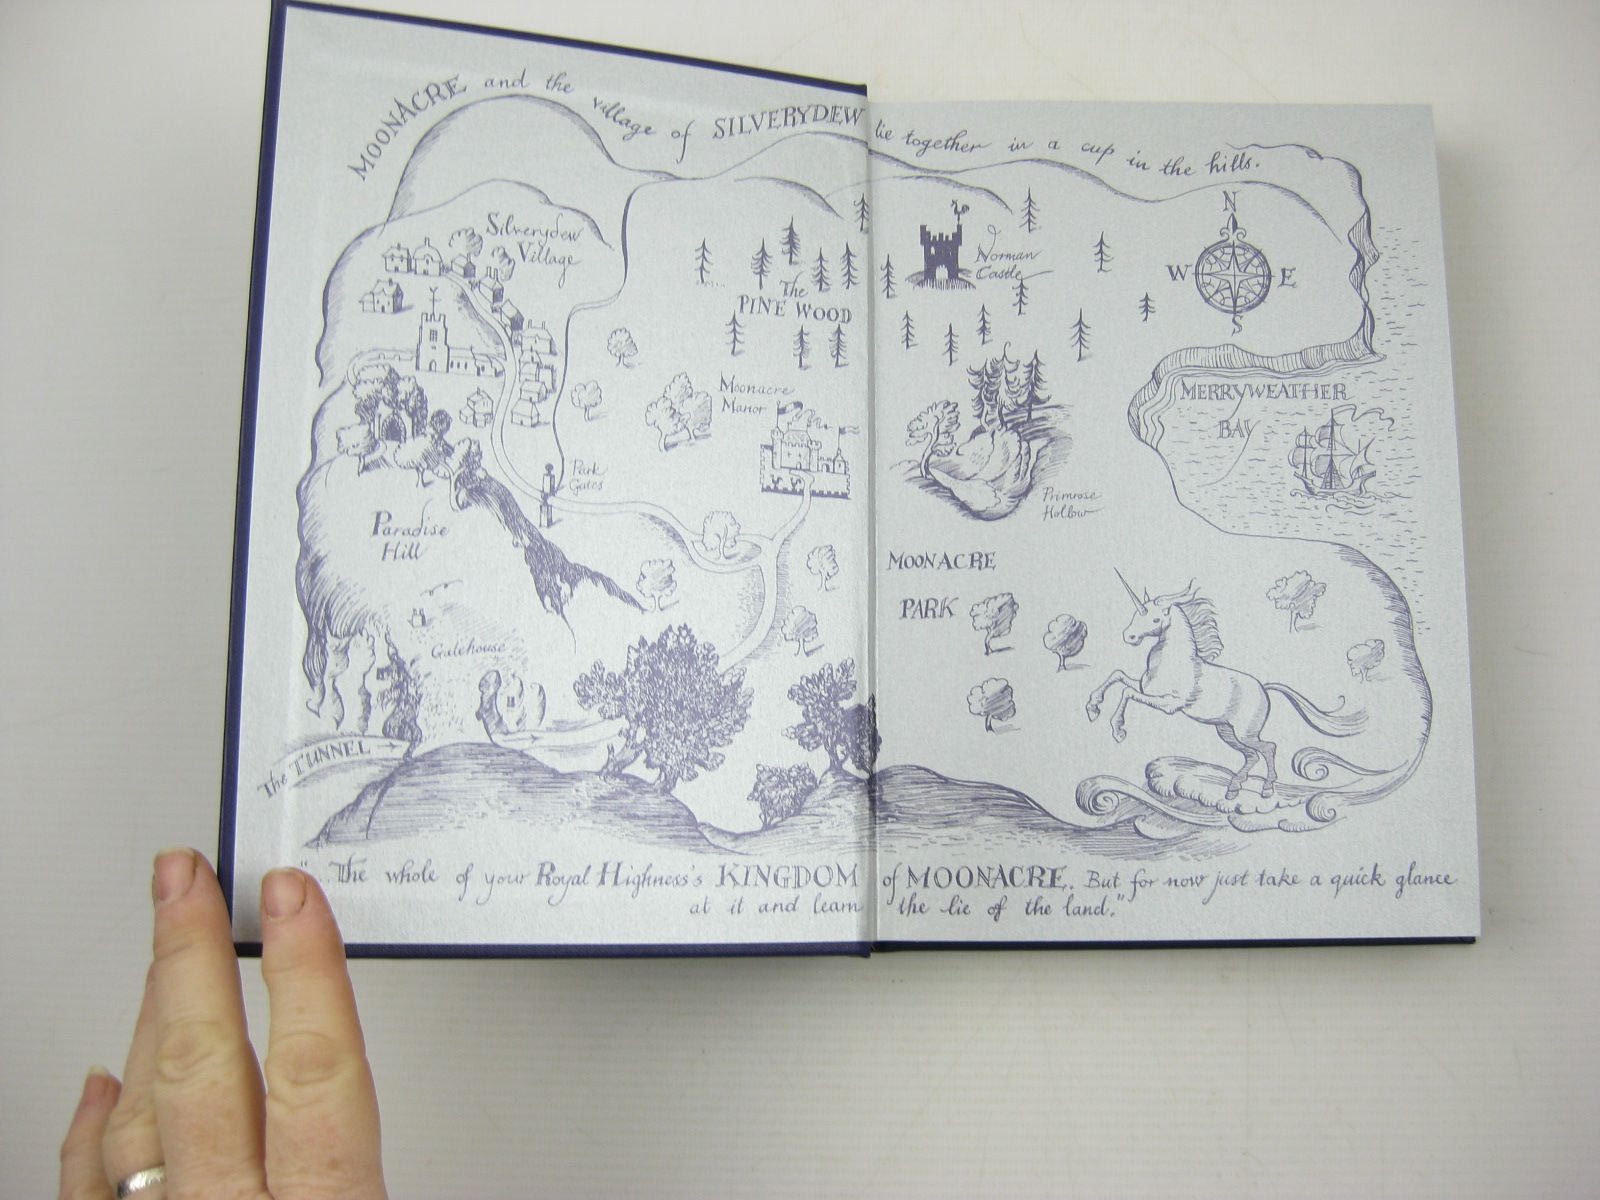 MOONACRE and the village of SILVERYDEW lie together in a cup in the hills.
Silverydew
Village
Norman
Castle
N
W E
S
The
PINE WOOD
Moonacre
Manor
MERRYWEATHER
BAY
Park
Gates
Primrose
Hollow
Paradise
Hill
MOONACRE
PARK
Gatehouse
The TUNNEL
"..The whole of your Royal Highness's KINGDOM of MOONACRE. But for now just take a quick glance
at it and learn the lie of the land."